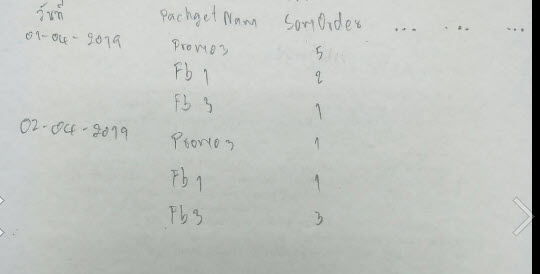 วันที่ Pachget Nam SomOrder ... ... ...
01-04-2019 Promo3 5
Fb 1 2
Fb 3 1
02-04-2019 Promo3 1
Fb 1 1
Fb 3 3